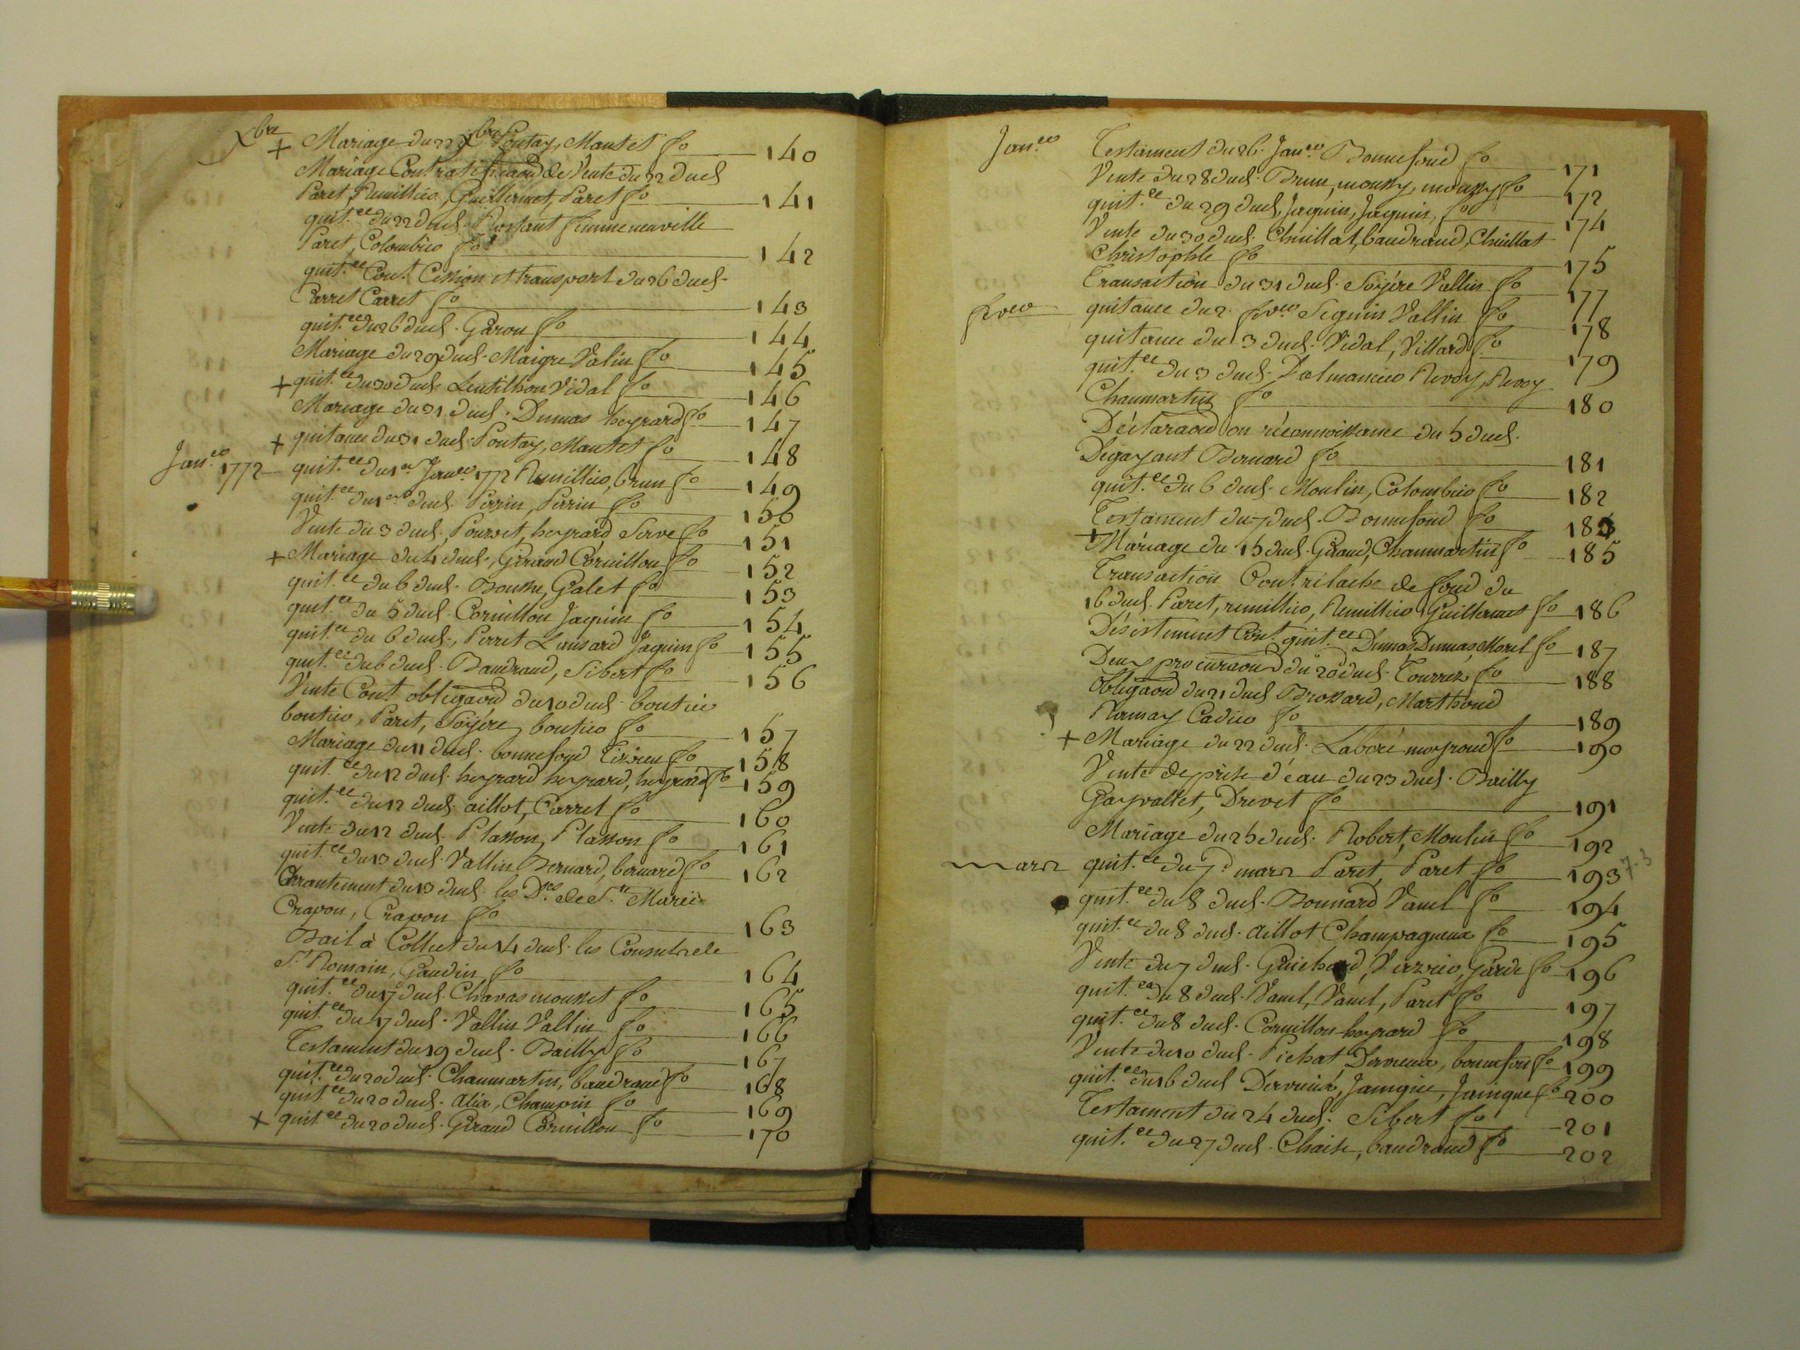 Xbre
+ Mariage du 22 Xbre Poutay, Mantet fo 140
Mariage Cont ratificaon de Vente du 22 dud
Paret, Remillieu, Guillermet, Paret fo 141
quit.ce du 22 dud. Portant
Paret, Colombier fo 142
quit.ce Cont Cession et transport du 26 dud.
Carret Carret fo 143
quit.ce du 26 dud. Garon fo 144
Mariage du 29 dud. Maigre Valin fo 145
+ quit.ce du 30 dud. Lentilhon Vidal fo 146
Mariage du 31 dud. Dumas heyrard fo 147
+ quitance du 31 dud. Poutay, Mantet fo 148
Janer 1772 quit.ce du 1er Janer 1772 Remillieu, brun fo 149
quit.ce du 1er dud. Perrin, Perin fo 150
Vente du 3 dud. Pourret, heyrard Serve fo 151
+ Mariage du 4 dud. Giraud Cornillon fo 152
quit.ce du 6 dud. Galet fo 153
quit.ce du 5 dud. Cornillon Jaquin fo 154
quit.ce du 6 dud. Perret Jaquin fo 155
quit.ce du 6 dud. Baudrand, Sibert fo 156
Vente Cont obligaon du 10 dud. boutier
boutier, Paret, Soyere, boutier fo 157
Mariage du 11 dud. bonnefond fo 158
quit.ce du 12 dud. heyrard heyrard, heyrard fo 159
quit.ce du 12 dud. aillot, Carret fo 160
Vente du 12 dud. Plasson, Plasson fo 161
quit.ce du 13 dud. Vallin Bernard, bernard fo 162
du 13 dud. les Des de Ste Marie
Crapon, Crapon fo 163
Bail à du 14 dud. les Consuls de
St Romain, Gaudin fo 164
quit.ce du 17 dud. Chavas mousset fo 165
quit.ce du 17 dud. Vallin Vallin fo 166
Testament du 19 dud. Bailly fo 167
quit.ce du 20 dud. Chaumartin, baudrand fo 168
quit.ce du 20 dud. Alix, Champin fo 169
+ quit.ce du 20 dud. Giraud Cornillon fo 170
Janer Testament du 26 Janer Bonnefond fo 171
Vente du 28 dud. Brun, moussy, moussy fo 172
quit.ce du 29 dud. Jaquin, Jaquin, fo 174
Vente du 30 dud. Chuillat, baudrand, Chuillat
Christophle fo 175
Transaction du 31 dud. Soyere Vallin fo 177
fvrer quitance du 2 fvrer Seguin Vallin fo 178
quitance du 3 dud. Vidal, Villard fo 179
quit.ce du 3 dud. Dalmancier Revoy, Revoy
Chaumartin fo 180
Déclaraon ou réconnoissance du 5 dud.
Degayant Bernard fo 181
quit.ce du 6 dud. Moulin, Colombier fo 182
Testament du 7 dud. Bonnefond fo 183
+ Mariage du 15 dud. Giraud, Chaumartin fo 185
Transaction Cont rilache de fond du
16 dud. Paret, remillieu, Remillieu, Guillermet fo 186
Désistement Cont quit.ce Dumas Dumas, Morel fo 187
Deux procuraon du 20 dud. fo 188
Obligaon du 21 dud Brossard, Marthoud
Ramay Cadier fo 189
+ Mariage du 22 dud. Laboré moyroud fo 190
Vente de prise d'eau du 23 dud. Bailly
Gayvallet, Drevet fo 191
Mariage du 25 dud. Robert, Moulin fo 192
mars quit.ce du 7 mars Paret, Paret fo 193 7-3
quit.ce du 8 dud. Bonnard Vanel fo 194
quit.ce du 8 dud. aillot Champagneux fo 195
Vente du 7 dud. Guichard, Garde fo 196
quit.ce du 8 dud. Vanel, Vanel, Paret fo 197
quit.ce du 8 dud. Cornillon heyrard fo 198
Vente du 10 dud. Pichat Dervieux, bonnefond fo 199
quit.ce du 16 dud Dervieux, Janigue, Janigue fo 200
Testament du 24 dud. Sibert fo 201
quit.ce du 27 dud. Chaise, baudrand fo 202